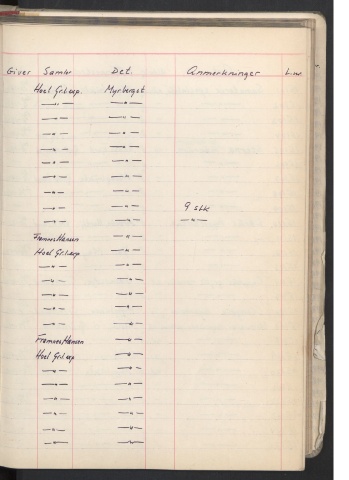 Giver Samler Det. Anmerkninger L.nr.
Hoel Gr.l.exp. Myrberget
—"— —"—
—"— —"—
—"— —"—
—"— —"—
—"— —"—
—"— —"—
—"— —"—
—"— —"— 9 stk
—"— —"— —"—
Framnes Hansen —"—
Hoel Gr.l.exp —"—
—"— —"—
—"— —"—
—"— —"—
—"— —"—
—"— —"—
Framnes Hansen —"—
Hoel Gr.l.exp —"—
—"— —"—
—"— —"—
—"— —"—
—"— —"—
—"— —"—
—"— —"—